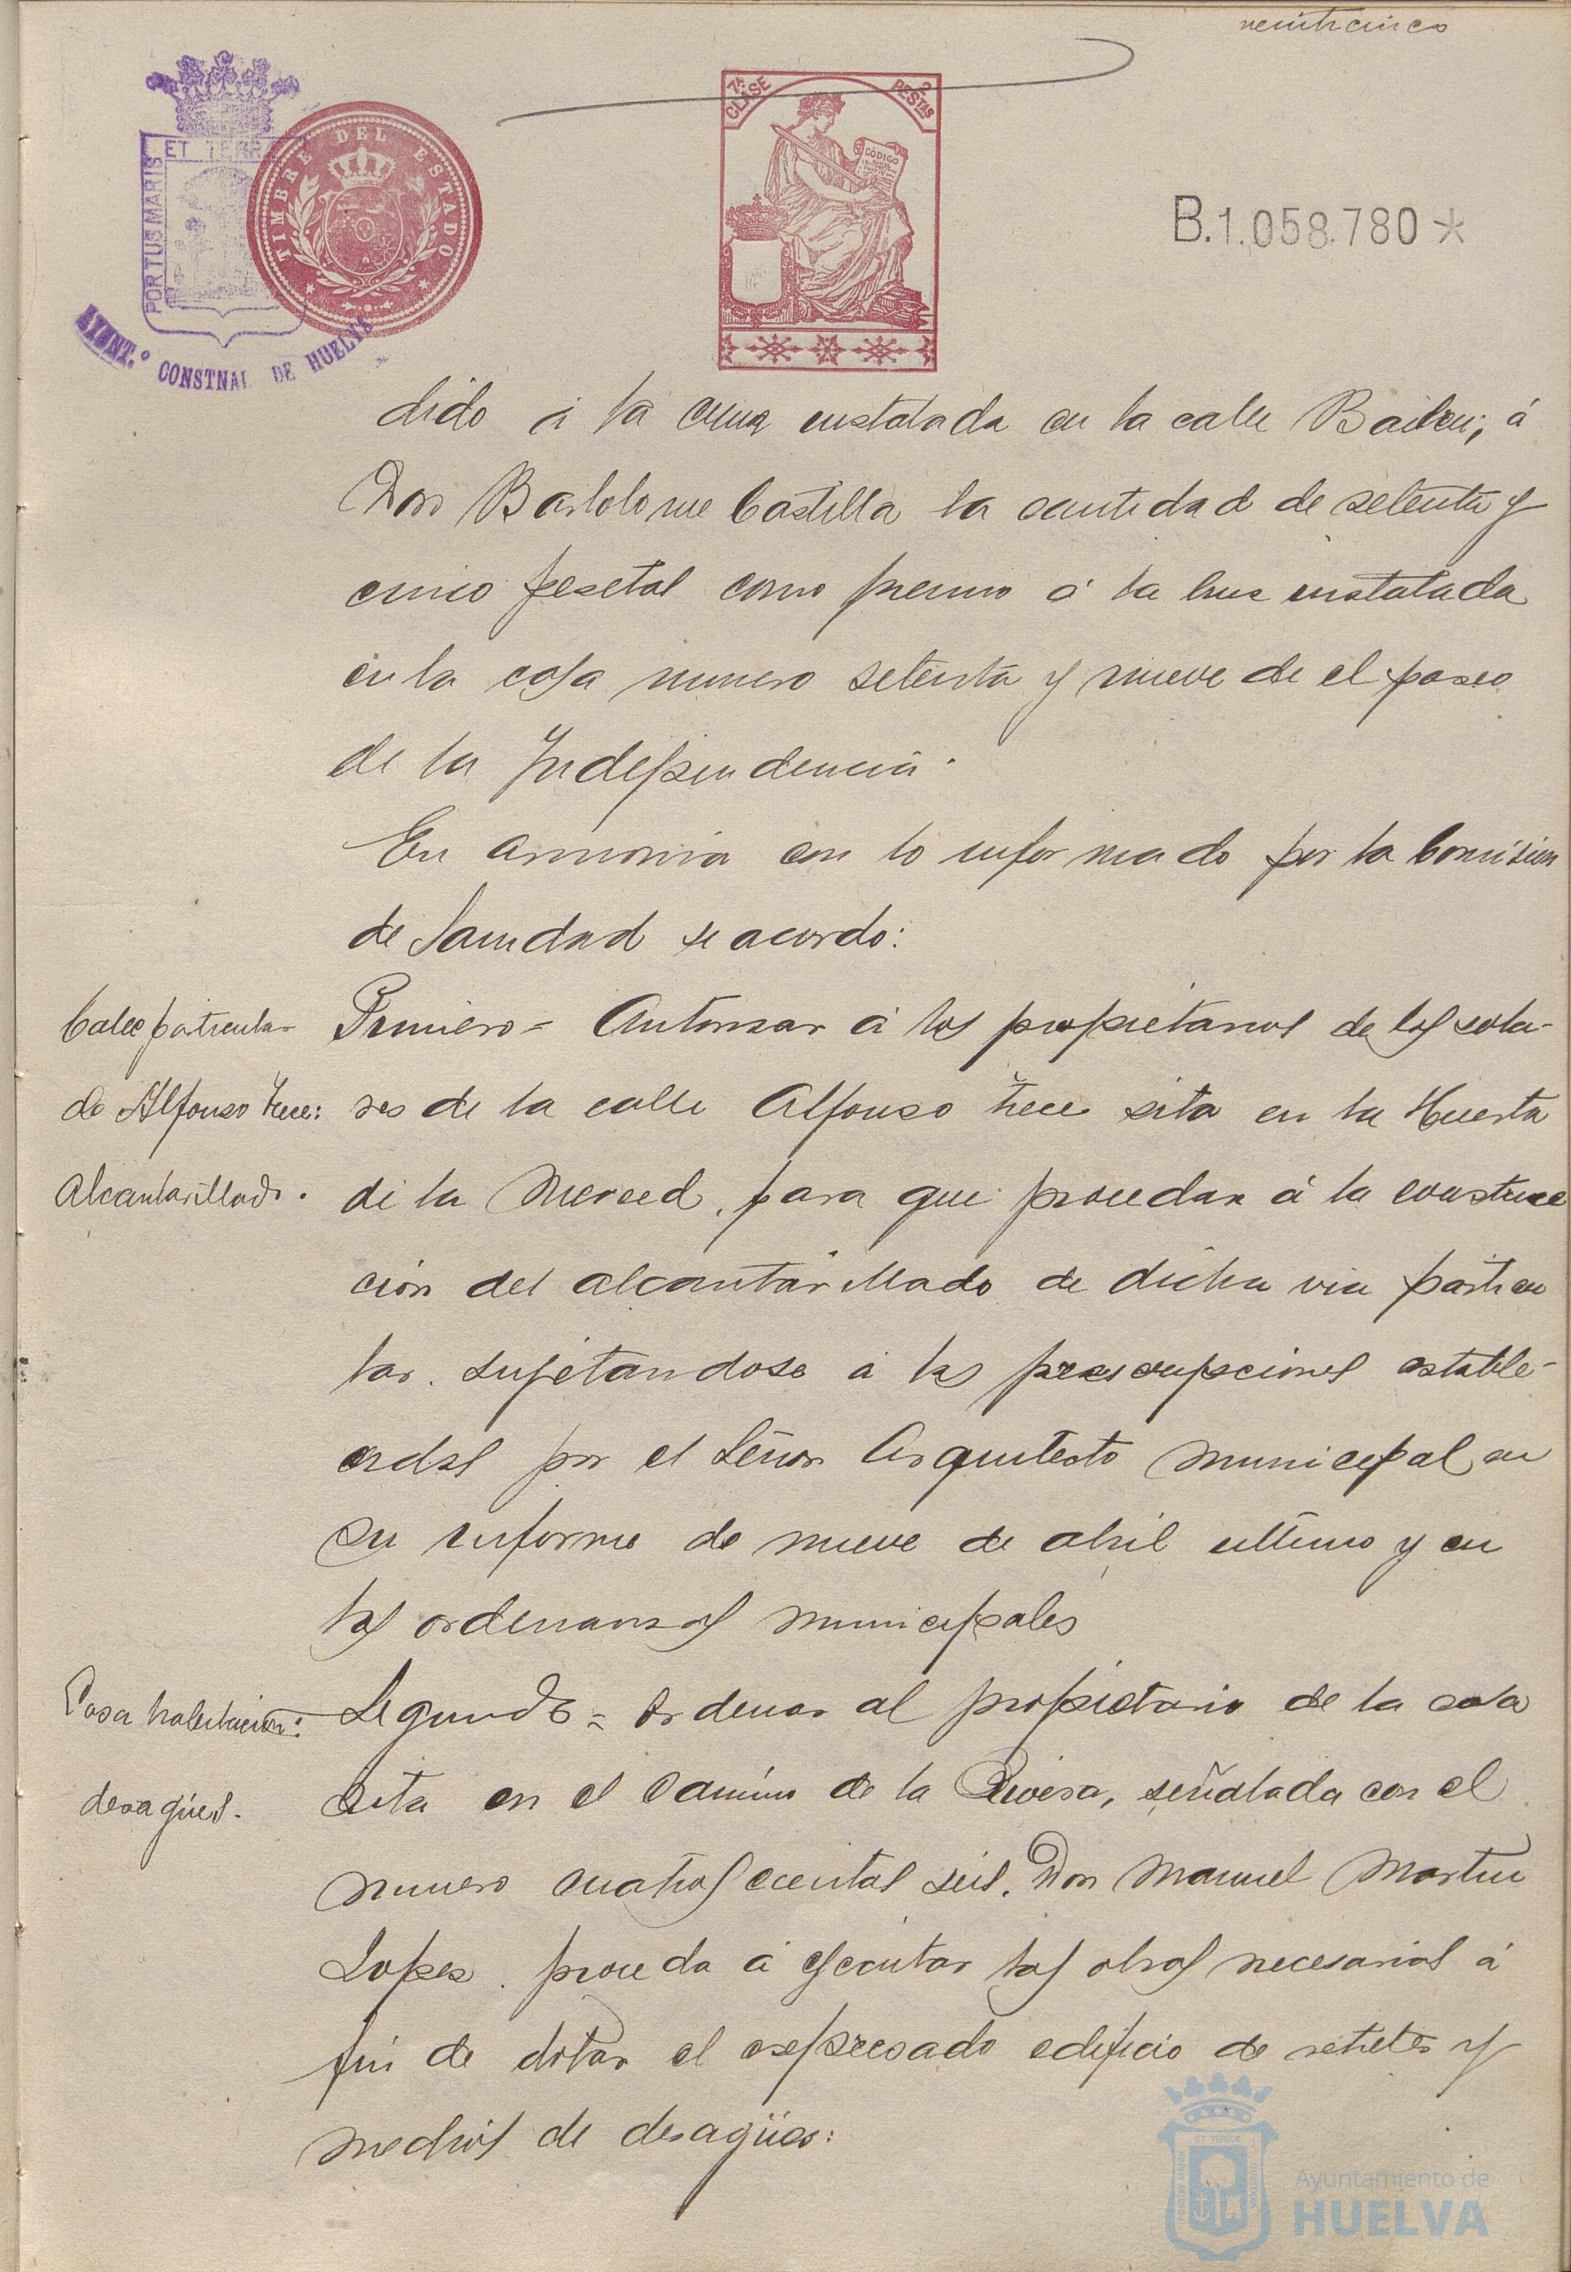 veinticinco
ET TERRA
PORTUS MARIS
AYUNT.º CONSTNAL DE HUELVA
TIMBRE DEL ESTADO
7ª CLASE
2 PESTAS
CÓDIGO
B.1.058.780*
dido á la cruz instalada en la calle Bailen; á
Don Bartolome Castilla la cantidad de setenta y
cinco pesetas como premio á la cruz instalada
en la casa numero setenta y nueve de el paseo
de la Independencia.
En armonia con lo informado por la Comision
de Sanidad se acordo:
Calle particular
de Alfonso trece:
Alcantarillado.
Primero= Autorizar á los propietarios de los sola-
res de la calle Alfonso trece sita en la Huerta
de la Merced, para que procedan á la construc
ción del alcantarillado de dicha via particu
lar. sujetandose á las prescripciones estable-
cidas por el Señor Arquitecto municipal en
su informe de nueve de abril ultimo y en
las ordenanzas municipales
Casa habitacion:
desagües.
Segundo= Ordenar al propietario de la casa
sita en el Camino de la Rivera, señalada con el
numero cuatroscientos seis. Don Manuel Martin
Lopez. proceda á ejecutar las obras necesarias á
fin de dotar el expresado edificio de retretes y
medios de desagües:
Ayuntamiento de
HUELVA